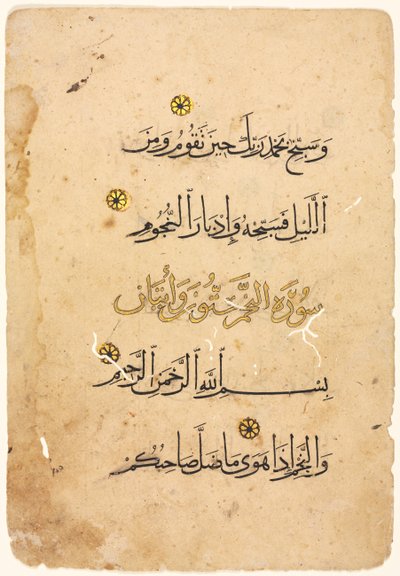 وَسَبِّحْ بِحَمْدِ رَبِّكَ حِينَ تَقُومُ وَمِنَ
ٱللَّيْلِ فَسَبِّحْهُ وَإِدْبَارَ ٱلنُّجُومِ
سُورَةُ النَّجْمِ سِتُّونَ وَٱثْنَتَانِ
بِسْمِ ٱللَّهِ ٱلرَّحْمَٰنِ ٱلرَّحِيمِ
وَالنَّجْمِ إِذَا هَوَى مَا ضَلَّ صَاحِبُكُمْ